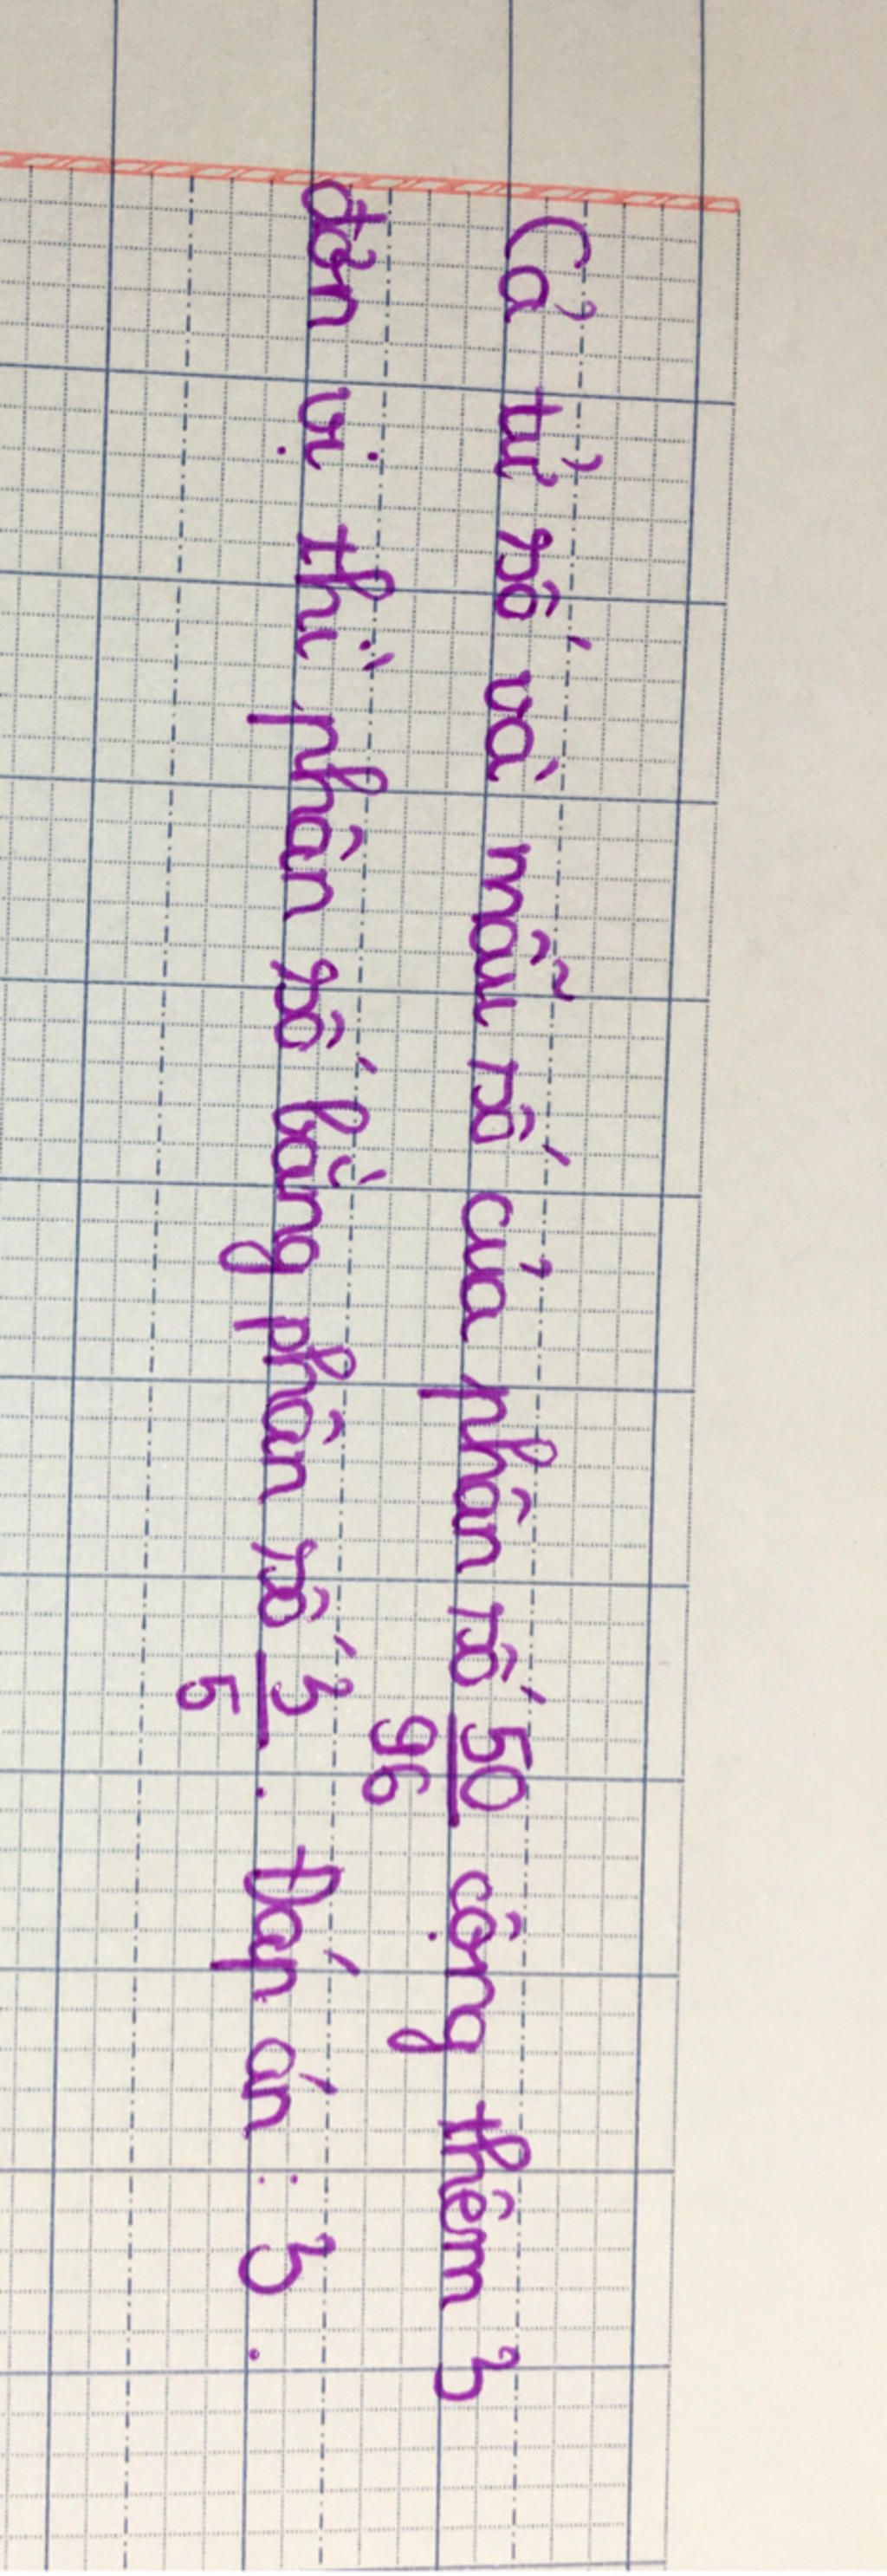 Cả tử số và mẫu số của phân số 50/96 cộng thêm 3
đơn vị thì phân số bằng phân số 3/5. Đáp án: 3.